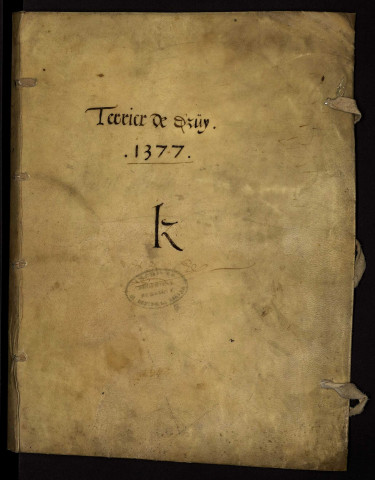 Terrier de Drüy.
.1377.
k